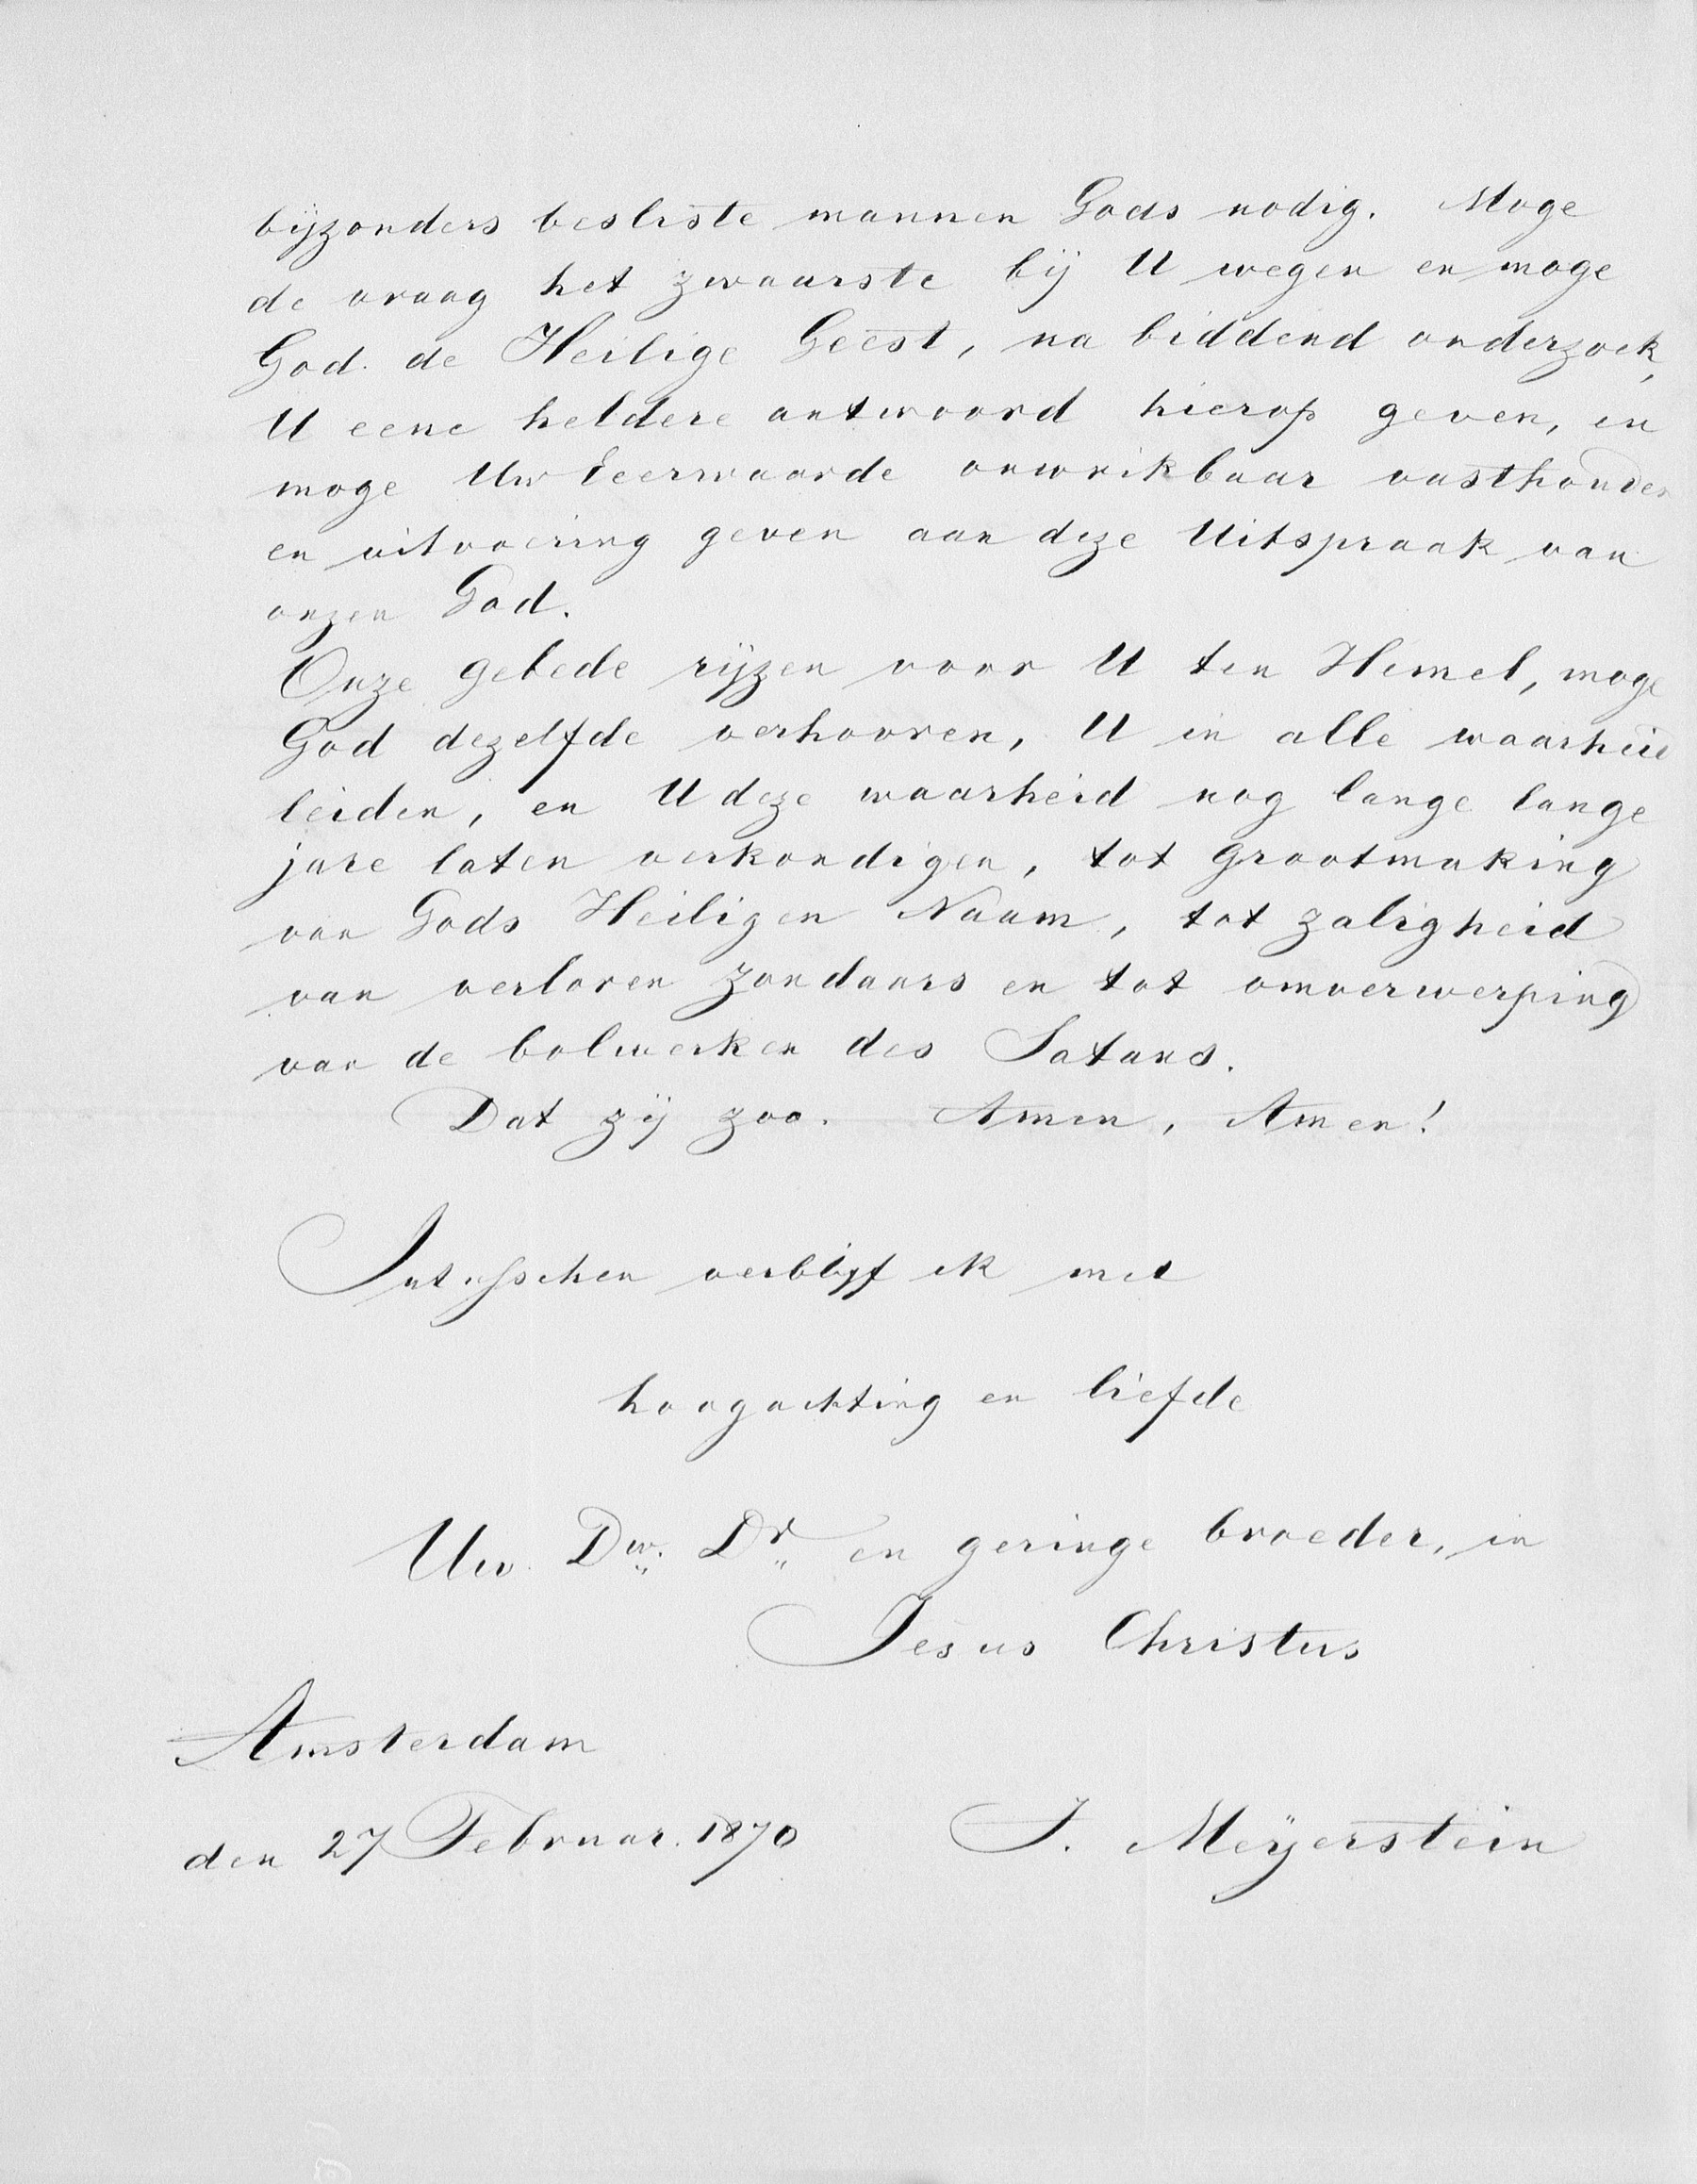 bijzonders besliste mannen Gods nodig. Moge
de vraag het zwaarste bij U wegen en moge
God de Heilige Geest, na biddend onderzoek,
U eene heldere antwoord hierop geven, en
moge Uw Eeerwaarde onwrikbaar vasthouden
en uitvoering geven aan deze Uitspraak van
onzen God.
Onze gebede rijzen voor U ten Hemel, moge
God dezelfde verhooren, U in alle waarheid
leiden, en U deze waarheid nog lange lange
jare laten verkondigen, tot Grootmaking
van Gods Heiligen Naam, tot zaligheid
van verloren zondaars en tot omverwerping
van de bolwerken des Satans.
Dat zij zoo. Amen, Amen!
Intusschen verblijf ik met
hoogachting en liefde
Uw Dw. Dr en geringe broeder, in
Jesus Christus
Amsterdam
den 27 Februar. 1870 J. Meijerstein